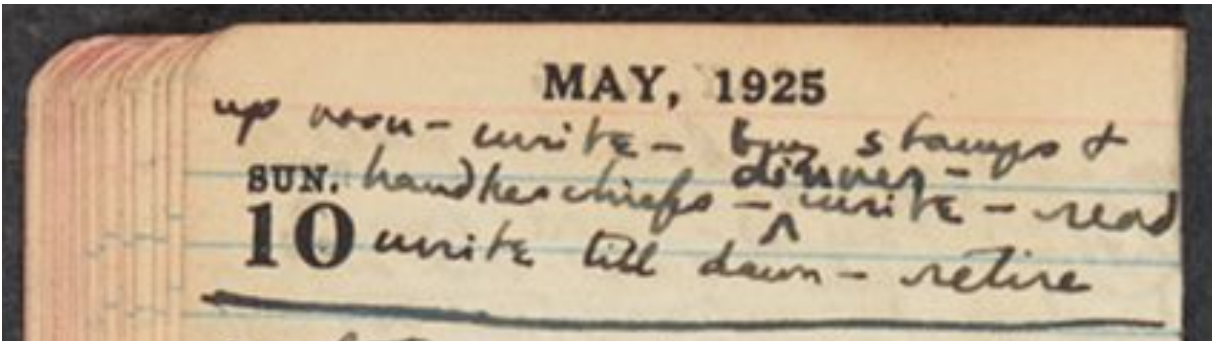 MAY, 1925
up noon - write - buy stamps &
SUN. handkerchiefs - dinner - write - read
10 write till dawn - retire